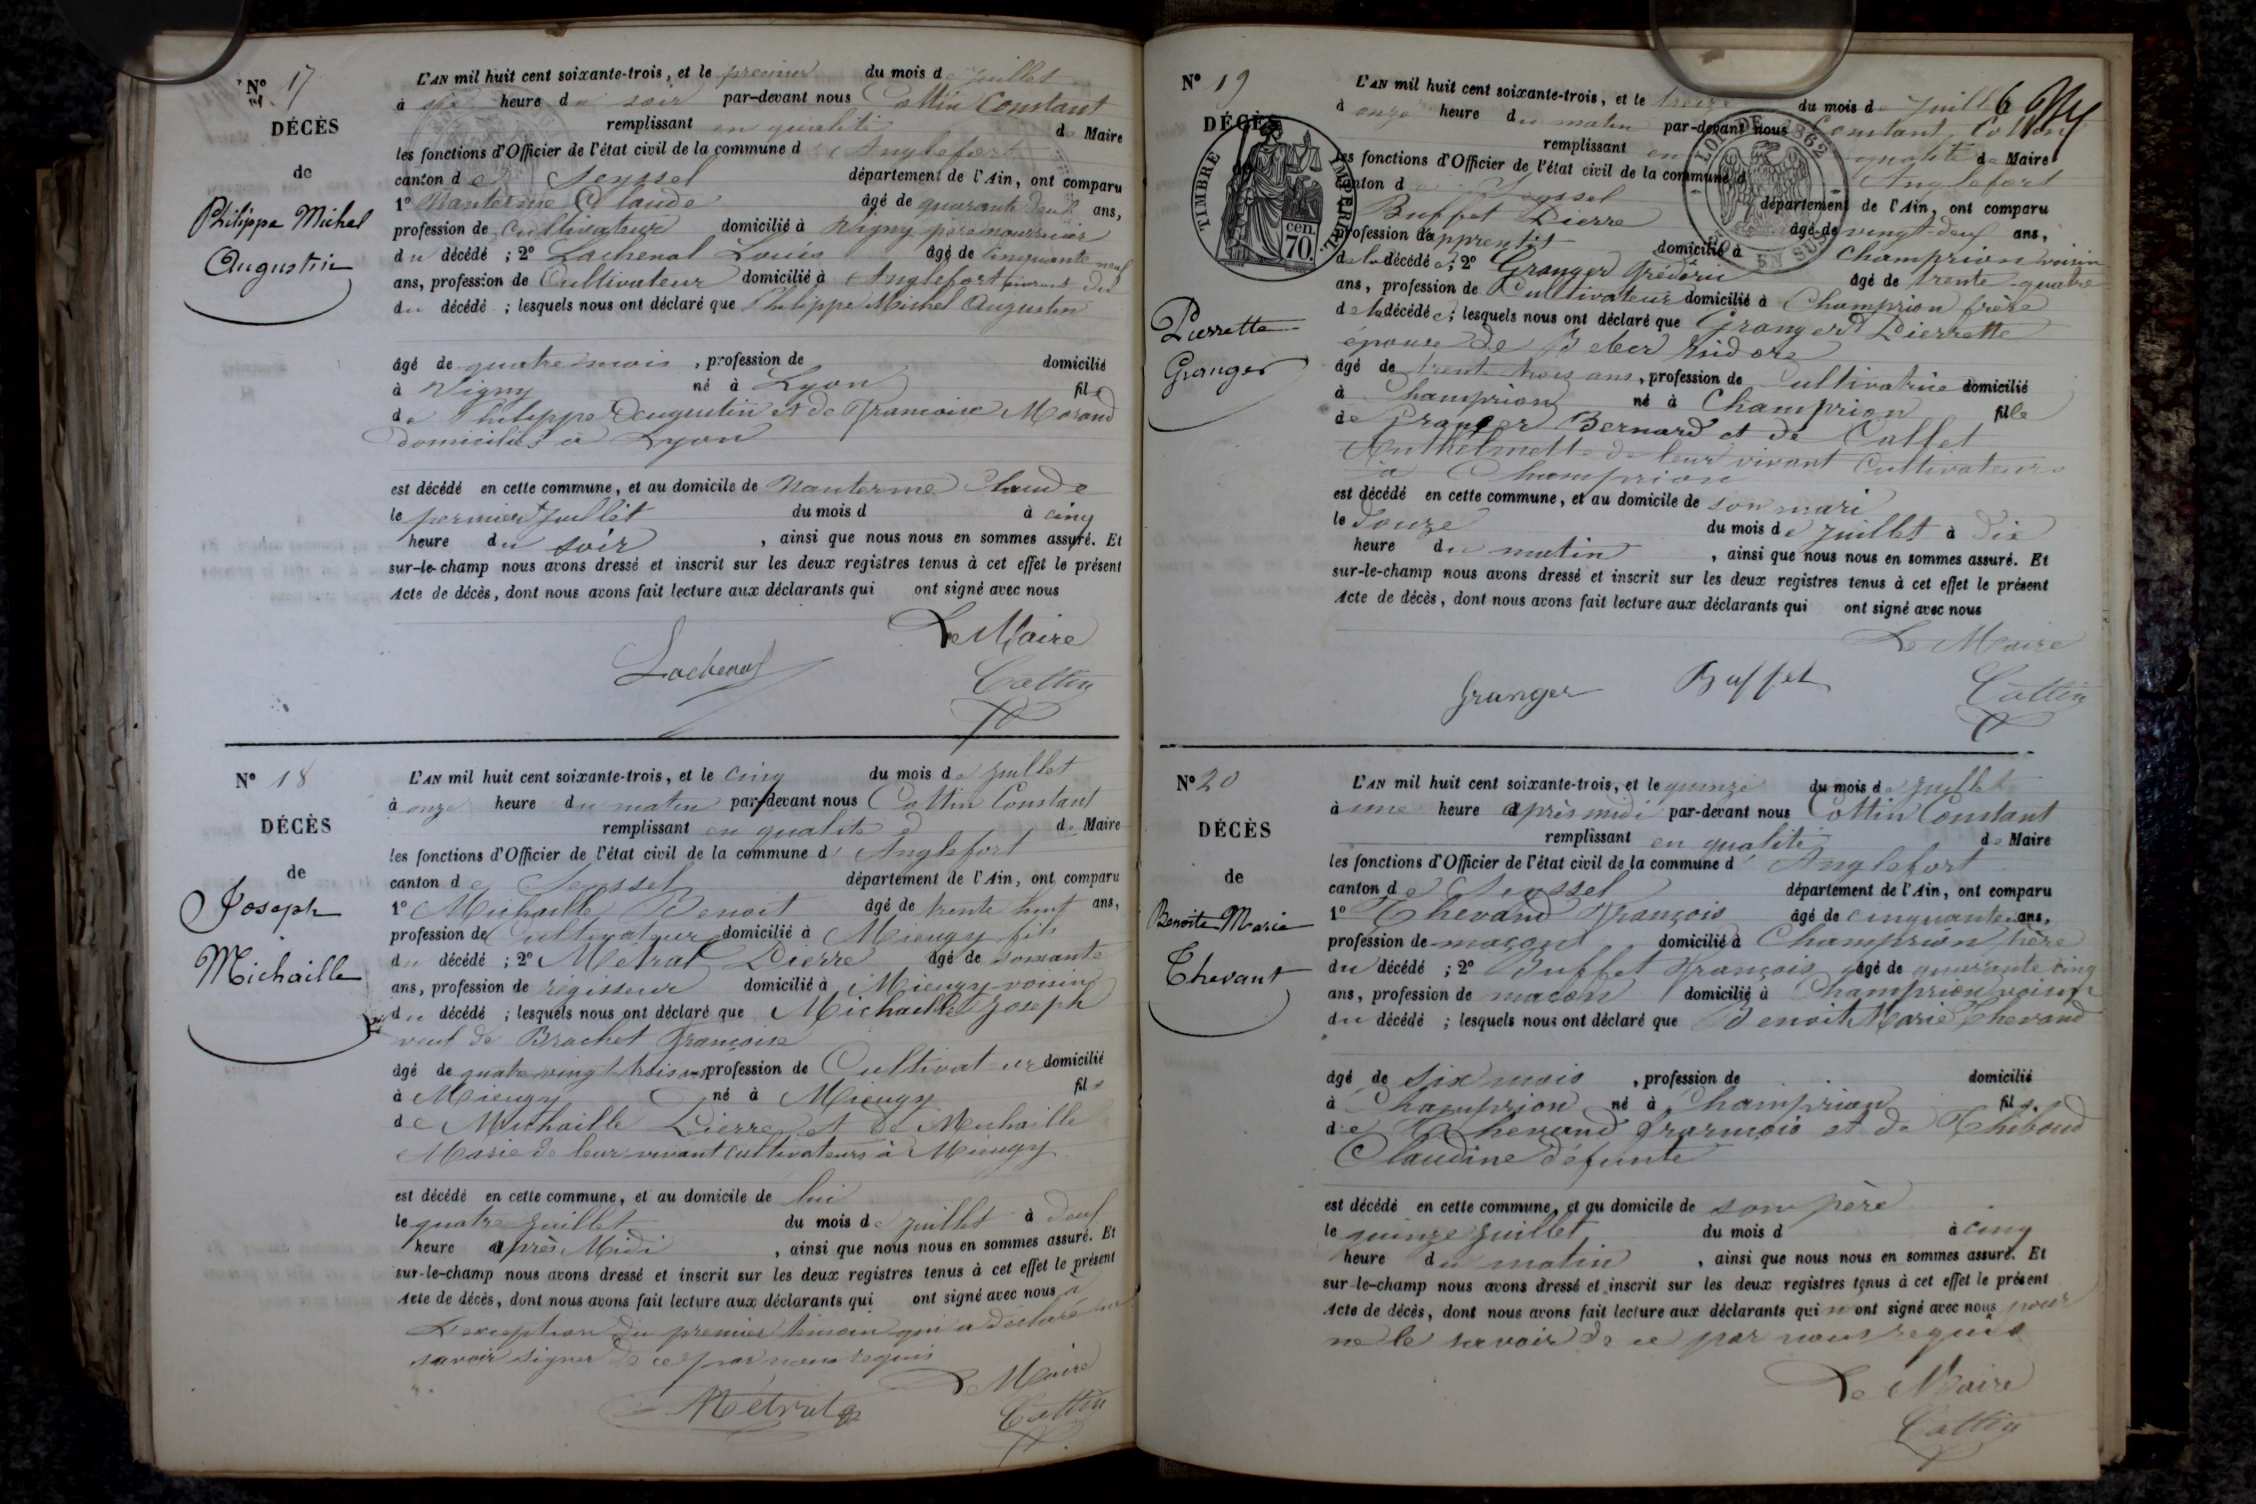 N° 17
DÉCÈS
de
Philippe Michel
Augustin
L'AN mil huit cent soixante-trois, et le premier du mois de juillet
à six heure du soir par-devant nous Cottin Constant
remplissant en qualité de Maire
les fonctions d'Officier de l'état civil de la commune d'Anglefort
canton de Seyssel département de l'Ain, ont comparu
1° Nanterme Claude âgé de quarante deux ans,
profession de Cultivateur domicilié à Rhigny père nourricier
du décédé ; 2° Lachenal Louis âgé de cinquante neuf
ans, profession de Cultivateur domicilié à Anglefort du
du décédé ; lesquels nous ont déclaré que Philippe Michel Augustin
âgé de quatre mois, profession de domicilié
à Vigny né à Lyon fils
de Philippe Augustin et de Francoise Morand
domiciliés à Lyon
est décédé en cette commune, et au domicile de Nanterme Claude
le permier juillet du mois d à cinq
heure du soir, ainsi que nous nous en sommes assuré. Et
sur-le-champ nous avons dressé et inscrit sur les deux registres tenus à cet effet le présent
Acte de décès, dont nous avons fait lecture aux déclarants qui ont signé avec nous
Le Maire
Lachenal Cottin
N° 18
DÉCÈS
de
Joseph
Michaille
L'AN mil huit cent soixante-trois, et le cinq du mois de juillet
à onze heure du matin par-devant nous Cottin Constant
remplissant en qualité d de Maire
les fonctions d'Officier de l'état civil de la commune d'Anglefort
canton de Seyssel département de l'Ain, ont comparu
1° Michaille Benoit âgé de trente huit ans,
profession de Cultivateur domicilié à Mieugy fils
du décédé ; 2° Metral Pierre âgé de soixante
ans, profession de régisseur domicilié à Mieugy voisin
du décédé ; lesquels nous ont déclaré que Michaille Joseph
veuf de Brachet Françoise
âgé de quatre vingt trois ans profession de Cultivateur domicilié
à Mieugy né à Mieugy fils
de Michaille Pierre et de Michaille
Marie de leur vivant cultivateurs à Mieugy
est décédé en cette commune, et au domicile de lui
le quatre juillet du mois de juillet à deux
heure après Midi, ainsi que nous nous en sommes assuré. Et
sur-le-champ nous avons dressé et inscrit sur les deux registres tenus à cet effet le présent
Acte de décès, dont nous avons fait lecture aux déclarants qui ont signé avec nous à
L'exception du premier témoin qui a déclaré ne
savoir signer de ce par nous requis
Le Maire
Métral Cottin
N° 19
DÉCÈS
TIMBRE IMPERIAL
70 cen.
LOI DE 1862
EN SUS
Pierrette
Granger
L'AN mil huit cent soixante-trois, et le treize du mois de juillet
à onze heure du matin par-devant nous Constant Cottin
remplissant en qualité de Maire
les fonctions d'Officier de l'état civil de la commune d'Anglefort
canton de Seyssel département de l'Ain, ont comparu
Buffet Pierre âgé de vingt-deux ans,
profession d'apprentif domicilié à Champrion voisin
de la décédée ; 2° Granger Fréderic âgé de trente quatre
ans, profession de Cultivateur domicilié à Champrion frère
de la décédée ; lesquels nous ont déclaré que Granger Pierrette
épouse de Isidore
âgé de trente trois ans, profession de Cultivatrice domicilié
à Champrion né à Champrion fille
de Granger Bernard et de Callet
Anthelmette de leur vivant Cultivateurs
à Champrion
est décédé en cette commune, et au domicile de son mari
le douze du mois de juillet à dix
heure du matin, ainsi que nous nous en sommes assuré. Et
sur-le-champ nous avons dressé et inscrit sur les deux registres tenus à cet effet le présent
Acte de décès, dont nous avons fait lecture aux déclarants qui ont signé avec nous
Le Maire
Granger Buffet Cottin
N° 20
DÉCÈS
de
Benoite Marie
Chevant
L'AN mil huit cent soixante-trois, et le quinze du mois de juillet
à une heure après midi par-devant nous Cottin Constant
remplissant en qualité de Maire
les fonctions d'Officier de l'état civil de la commune d'Anglefort
canton de Seyssel département de l'Ain, ont comparu
1° Chevand François âgé de cinquante ans,
profession de maçon domicilié à Champrion père
du décédé ; 2° Buffet François âgé de quarante cinq
ans, profession de macon domicilié à Champrion voisin
du décédé ; lesquels nous ont déclaré que Benoit Marie Chevand
âgé de six mois, profession de domicilié
à Champrion né à Champrion fils
de Chevand François et de Thiboud
Claudine défunte
est décédé en cette commune, et au domicile de son père
le quinze juillet du mois d à cinq
heure du matin, ainsi que nous nous en sommes assuré. Et
sur-le-champ nous avons dressé et inscrit sur les deux registres tenus à cet effet le présent
Acte de décès, dont nous avons fait lecture aux déclarants qui n'ont signé avec nous pour
ne le savoir de ce par nous requis
Le Maire
Cottin